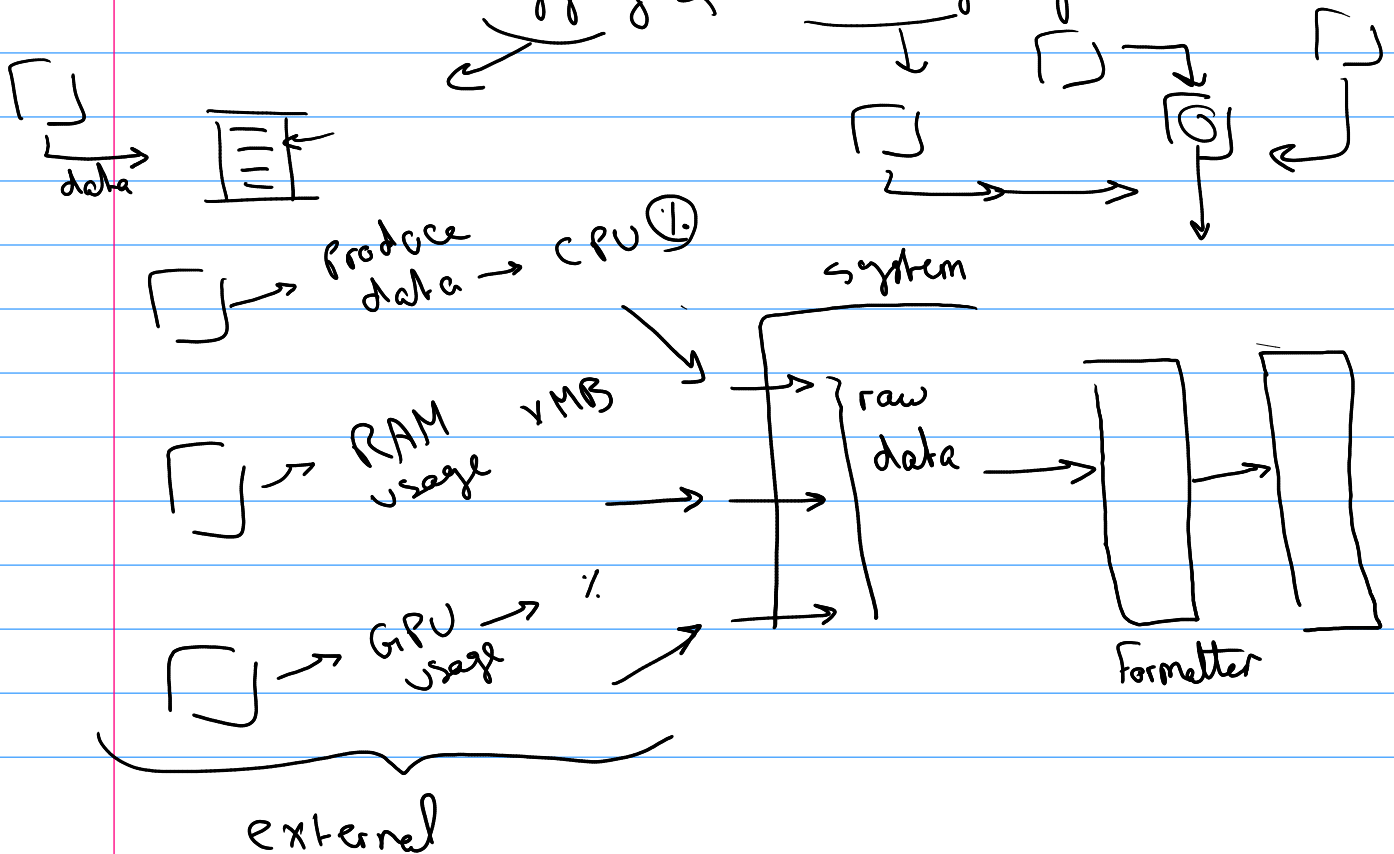 data
Produce
data
CPU %
system
RAM
usage
raw
data
GPU
usage
%
Formatter
external